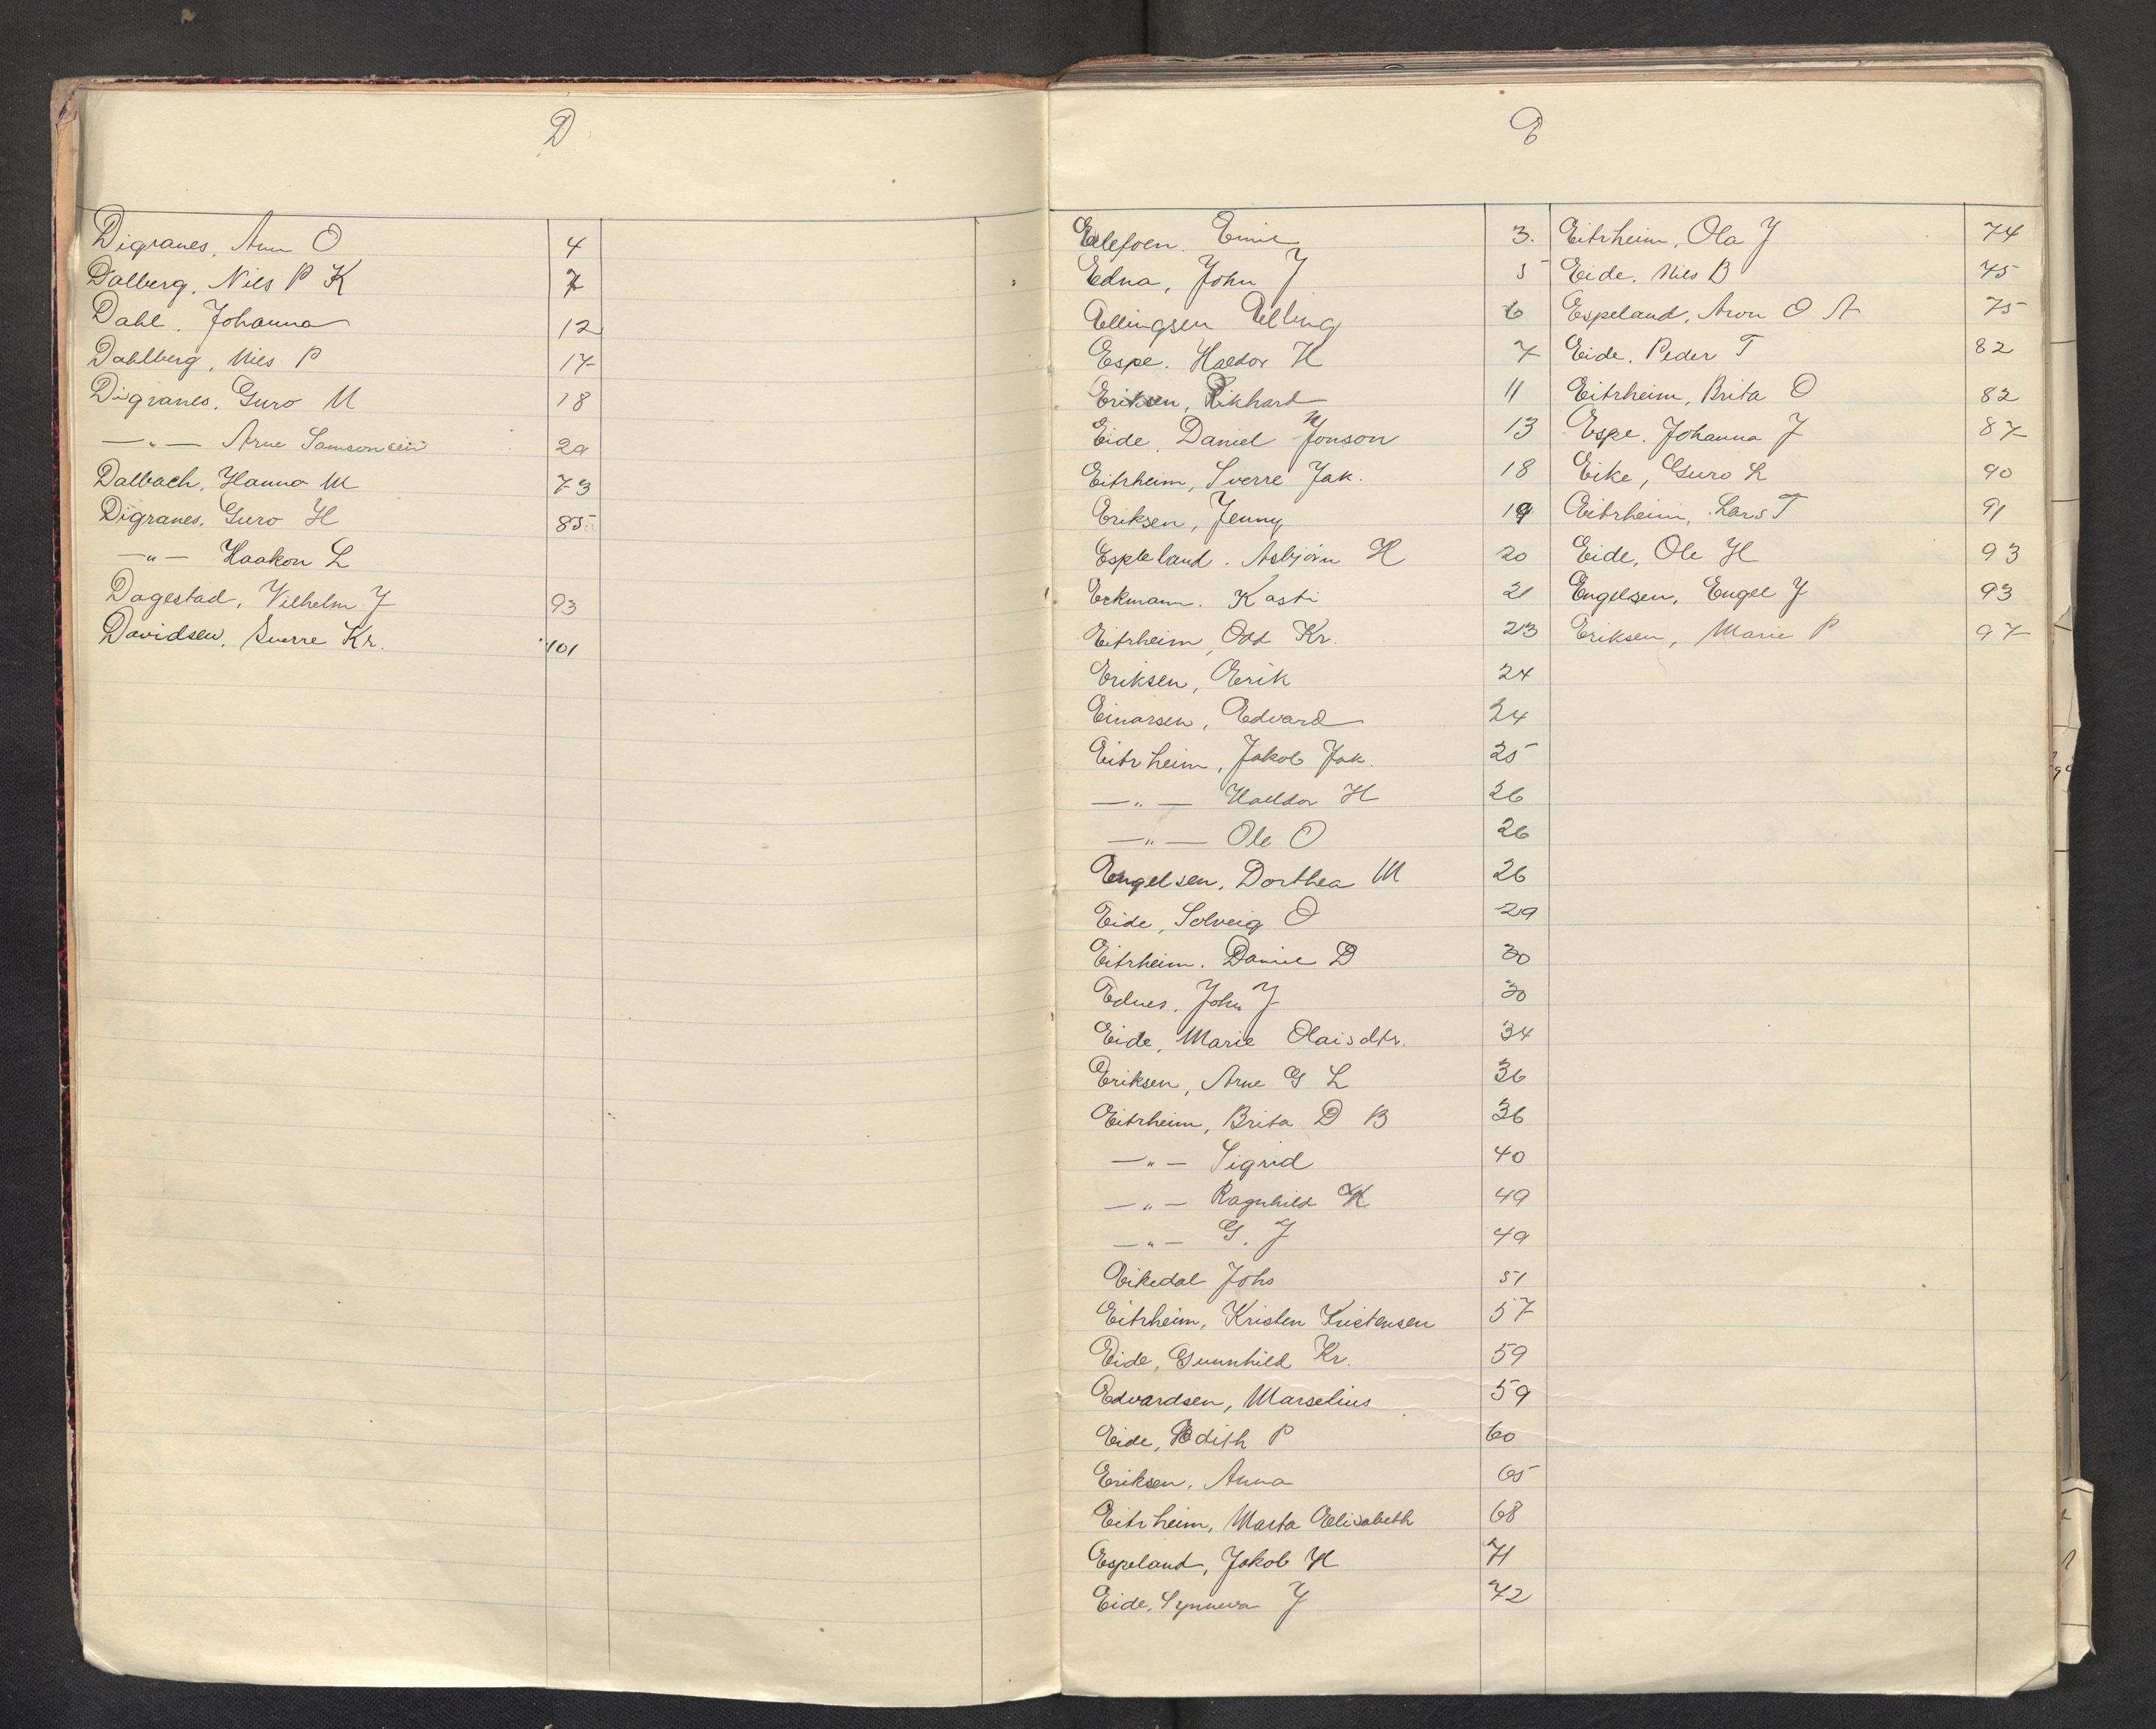 D
Digranes, Ann O 4
Dalberg, Nils P K 7
Dahl. Johanna 12
Dahlberg, Nils P 17
Digranes, Guro M 18
—„— Arne Samson 29
Dalbach, Hanna M 73
Digranes, Guro H 85
—„— Haakon L
Dagestad, Vilhelm J 93
Davidsen, Sverre Kr. 101
E
Ellefsen. Emil 3.
Edna, John J 5
Ellingsen Elling 6
Espe. Haldor H 7
Eriksen, Rikhard 11
Eide, Daniel Jonson 13
Eitrheim, Sverre Jak. 18
Eriksen, Jenny 19
Espeland. Asbjørn H 20
Eckmann. Kasti 21
Eitrheim, Odd Kr. 23
Eriksen, Erik 24
Einarsen, Edvard 24
Eitrheim, Jakob Jak. 25
—„— Halldor H 26
—„— Ole O 26
Engelsen, Dorthea M 26
Eide, Solveig O 29
Eitrheim. Daniel D 30
Ednes, John J 30
Eide, Marie Olaisdtr. 34
Eriksen, Arne G L 36
Eitrheim, Brita D B 36
—„— Sigrid 40
—„— Ragnhild K 49
—„— G. J 49
Eikedal Johs 51
Eitrheim, Kristen Kristensen 57
Eide, Gunnhild Kr. 59
Edvardsen, Marselius 59
Eide, Edith P 60
Eriksen, Anna 65
Eitrheim, Marta Elisabeth 68
Espeland, Jakob H 71
Eide, Synneva J 72
Eitrheim, Ola J 74
Eide, Nils B 75
Espeland, Aron O A 75
Eide, Peder T 82
Eitrheim, Brita O 82
Espe. Johanna J 87
Eike, Guro L 90
Eitrheim, Lars T 91
Eide, Ole H 93
Engelsen, Engel J 93
Eriksen, Marie P 97